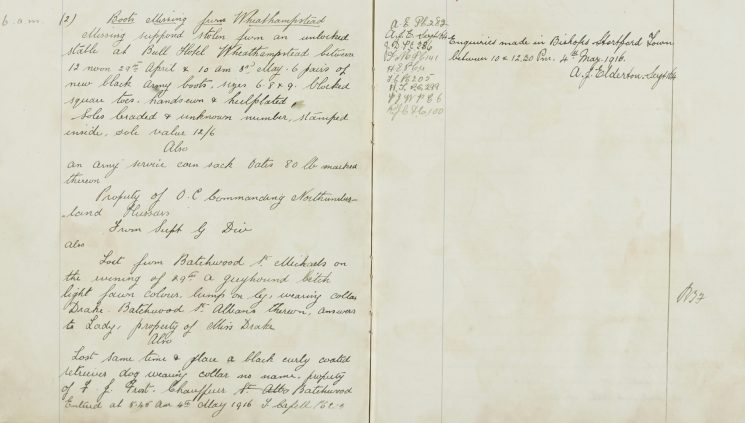 6 a.m. (2) Boots Missing from Wheathampstead
Missing supposed stolen from an unlocked
stable at Bull Hotel Wheathampstead between
12 noon 29th April & 10 am 3rd May. 6 pairs of
new black Army boots, sizes 6.8 & 9. blocked
square toes. handsewn & heelplated,
Soles braded & unknown number, stamped
inside, sole value 12/6
Also
an army service corn sack Oats 80 lb marked
thereon
Property of O.C Commanding Northumber-
-land Hussars
From Supt G Div
Also
Lost from Batchwood St Michaels on
the evening of 29th A greyhound bitch
light fawn colour, lump on leg, wearing collar
Drake. Batchwood St Albans thereon, answers
to Lady, property of Miss Drake
Also
Lost same time & place a black curly coated
retriever dog wearing collar no name, property
of F. J. Frost. Chauffeur St Albs Batchwood
Entered at 8.45 am 4th May 1916 F Capell
A.E. Pk 282
A.J.E. Sergt
205
100
Enquiries made in Bishops Stortford Town
between 10 & 12,20 Pm. 4th May 1916.
A. J. Elderton. Sergt